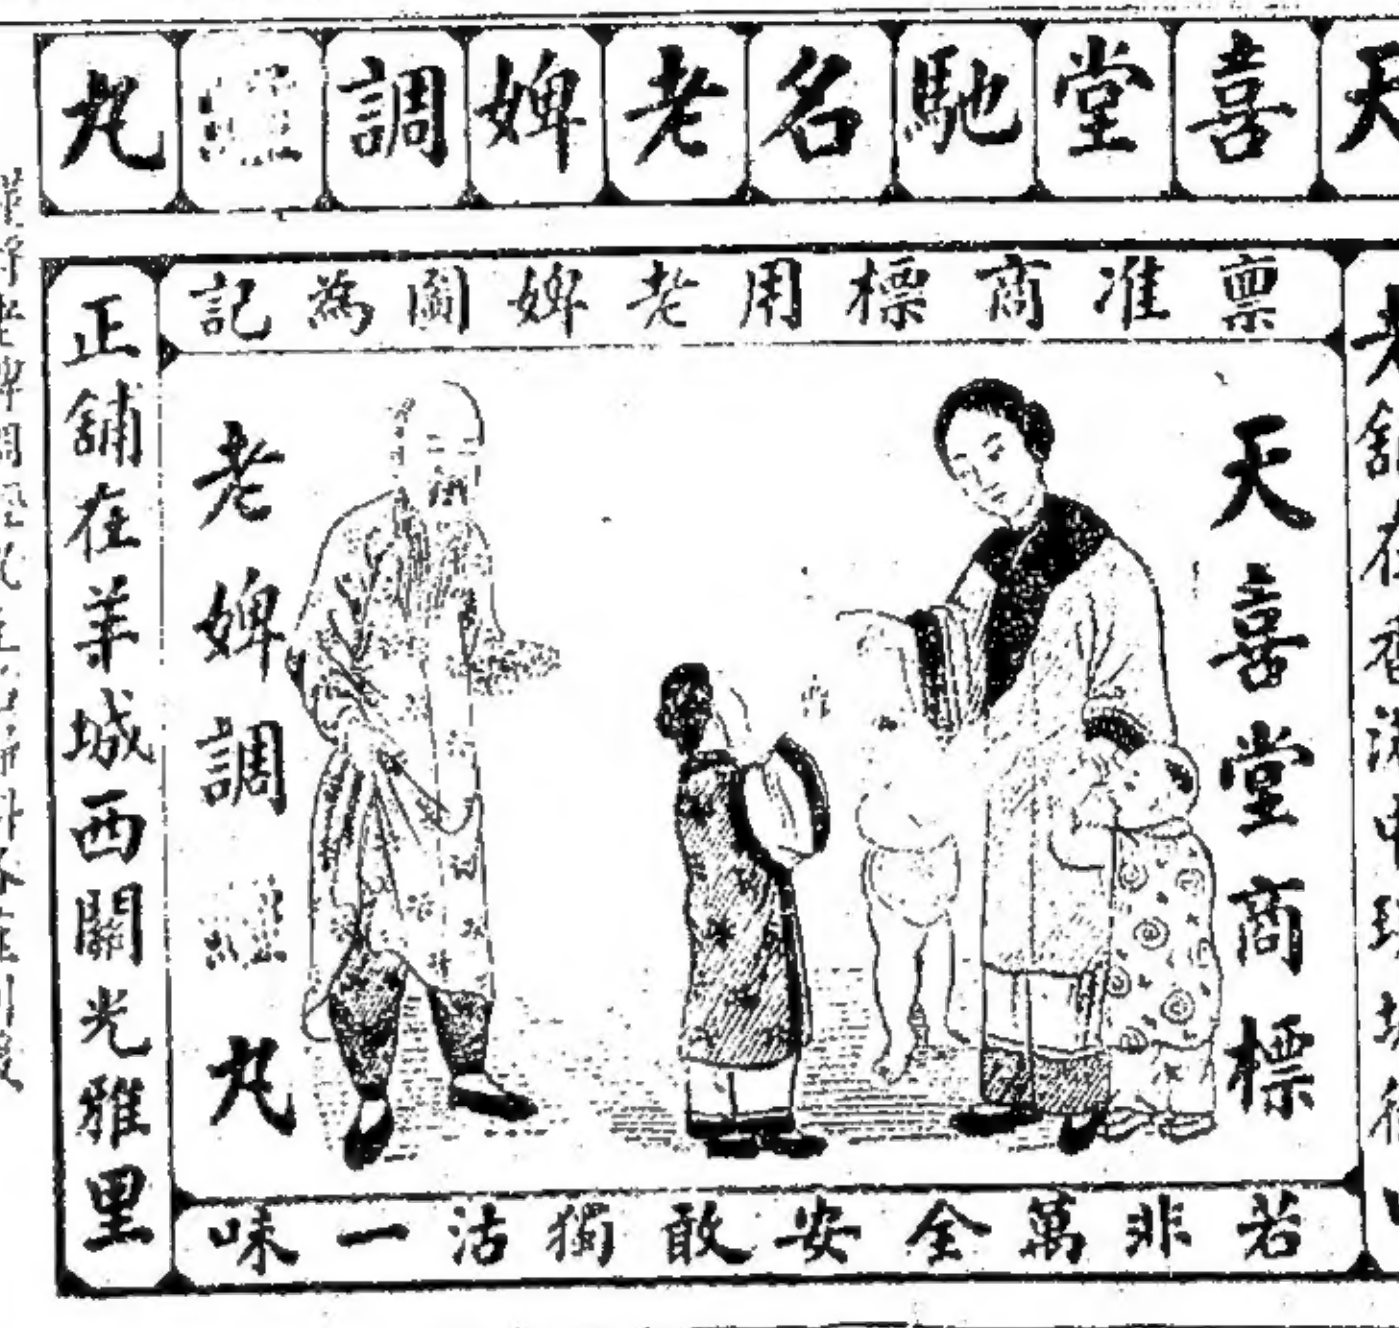 天喜堂馳名老婢調經丸
稟准商標用老婢圖為記
天喜堂商標
老婢調經丸
正舖在羊城西關光雅里
若非萬全安敢獨沽一味